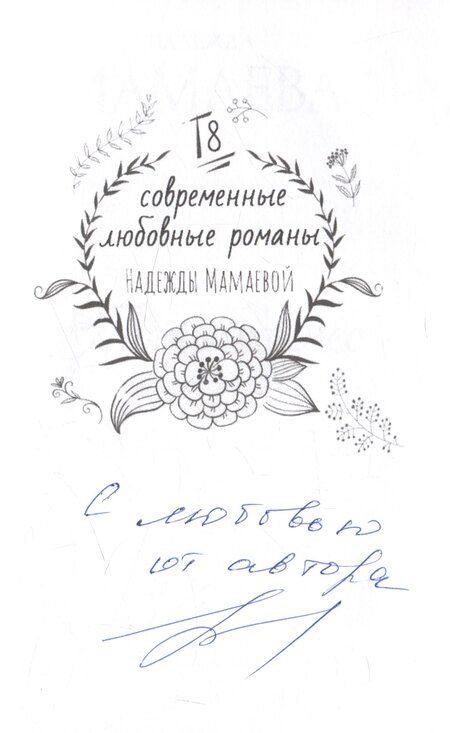 Т8
современные
любовные романы
Надежды Мамаевой
С любовью
от автора